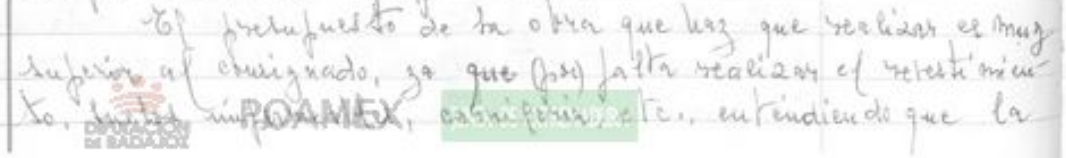 El presupuesto de la obra que hay que realizar es muy
superior al consignado, ya que (por) falta realizar el revestimien-
to, carpintería, etc., entendiendo que la
ROAMEX
DIPUTACIÓN
DE BADAJOZ